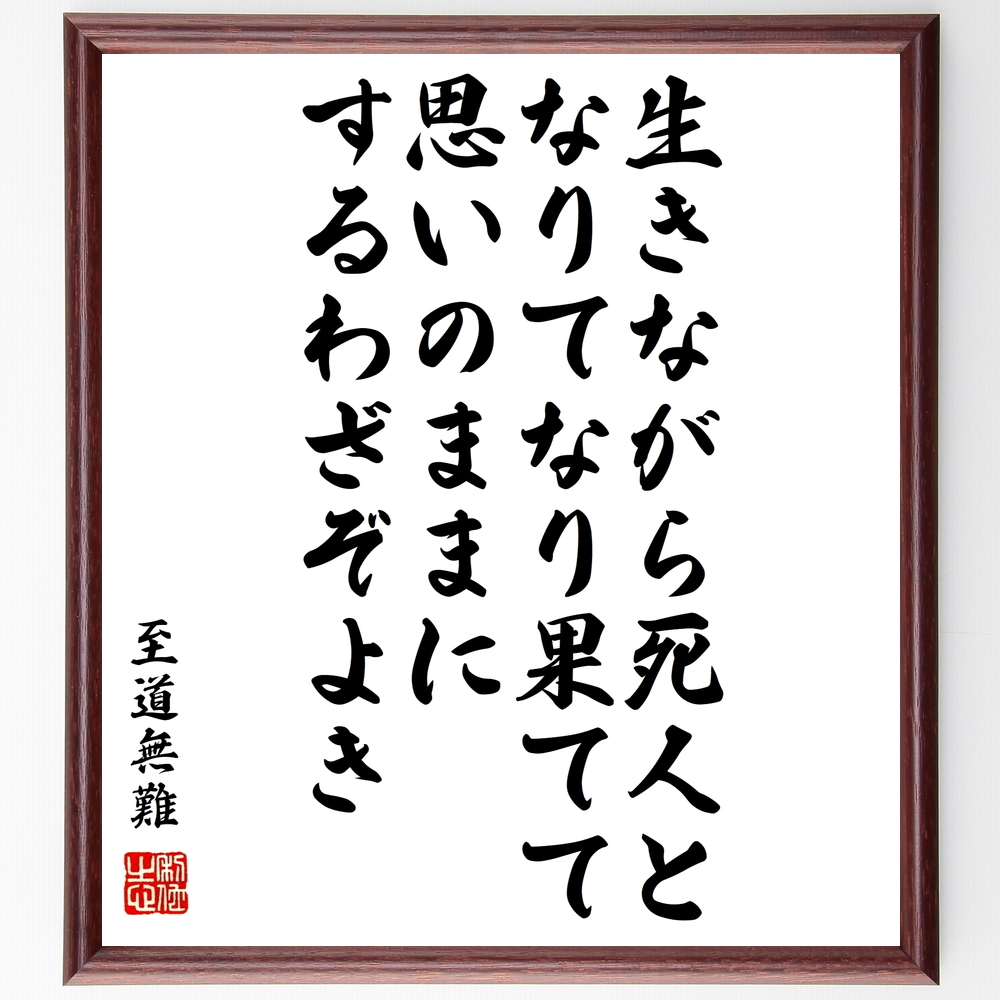 生きながら死人と
なりてなり果てて
思いのままに
するわざぞよき
至道無難